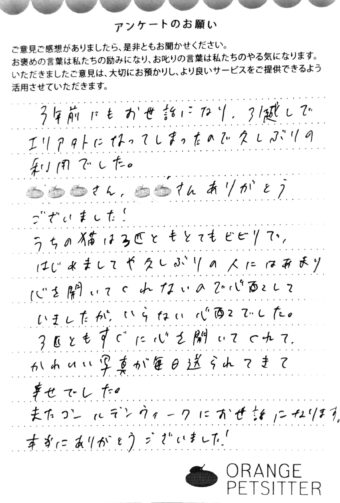 アンケートのお願い
ご意見ご感想がありましたら、是非ともお聞かせください。
お褒めの言葉は私たちの励みになり、お叱りの言葉は私たちのやる気になります。
いただきましたご意見は、大切にお預かりし、より良いサービスをご提供できるよう
活用させていただきます。
3年前にもお世話になり、引越しで
エリア外になってしまったので久しぶりの
利用でした。
さん、さんありがとう
ございました!
うちの猫は3匹ともとてもビビリで、
はじめましてや久しぶりの人にはあまり
心を開いてくれないので心配して
いましたが、いらない心配でした。
3匹ともすぐに心を開いてくれて、
かわいい写真が毎日送られてきて
幸せでした。
またゴールデンウィークにお世話になります。
本当にありがとうございました!
ORANGE
PETSITTER